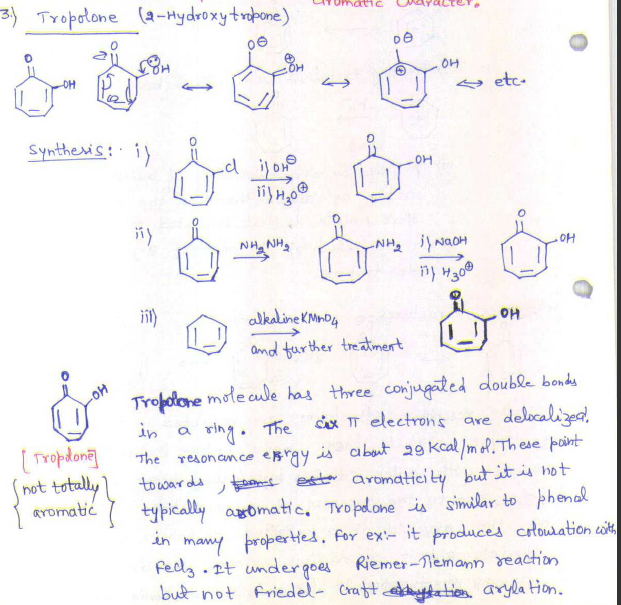 Aromatic Character.
3.) Tropolone (2-Hydroxytropone)
O OH O OH ↔ O⊖ ⊕OH ↔ O⊖ ⊕ OH ↔ etc.
Synthesis: i) O Cl i) OH⊖ ii) H3O⊕ → O OH
ii) O NH2NH2 → O NH2 i) NaOH ii) H3O⊕ → O OH
iii) alkaline KMnO4 → and further treatment O OH
O OH
[Tropolone]
{not totally aromatic}
Tropolone molecule has three conjugated double bonds
in a ring. The six π electrons are delocalized.
The resonance energy is about 29 Kcal/mol. These point
towards, aromaticity but it is not
typically aromatic. Tropolone is similar to phenol
in many properties. For ex:- it produces colouration with
FeCl3. It undergoes Riemer-Tiemann reaction
but not Friedel-Craft arylation.